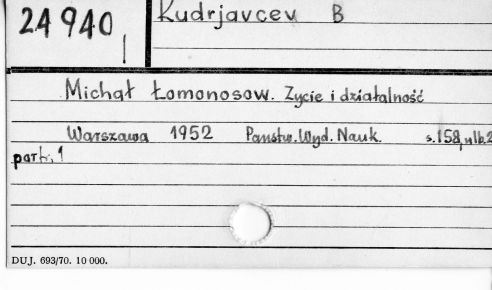 24940
I
Kudrjavcev B
Michał Łomonosow. Życie i działalność
Warszawa 1952 Państw. Wyd. Nauk. s. 158, nlb. 2
portr. 1
DUJ. 693/70. 10 000.